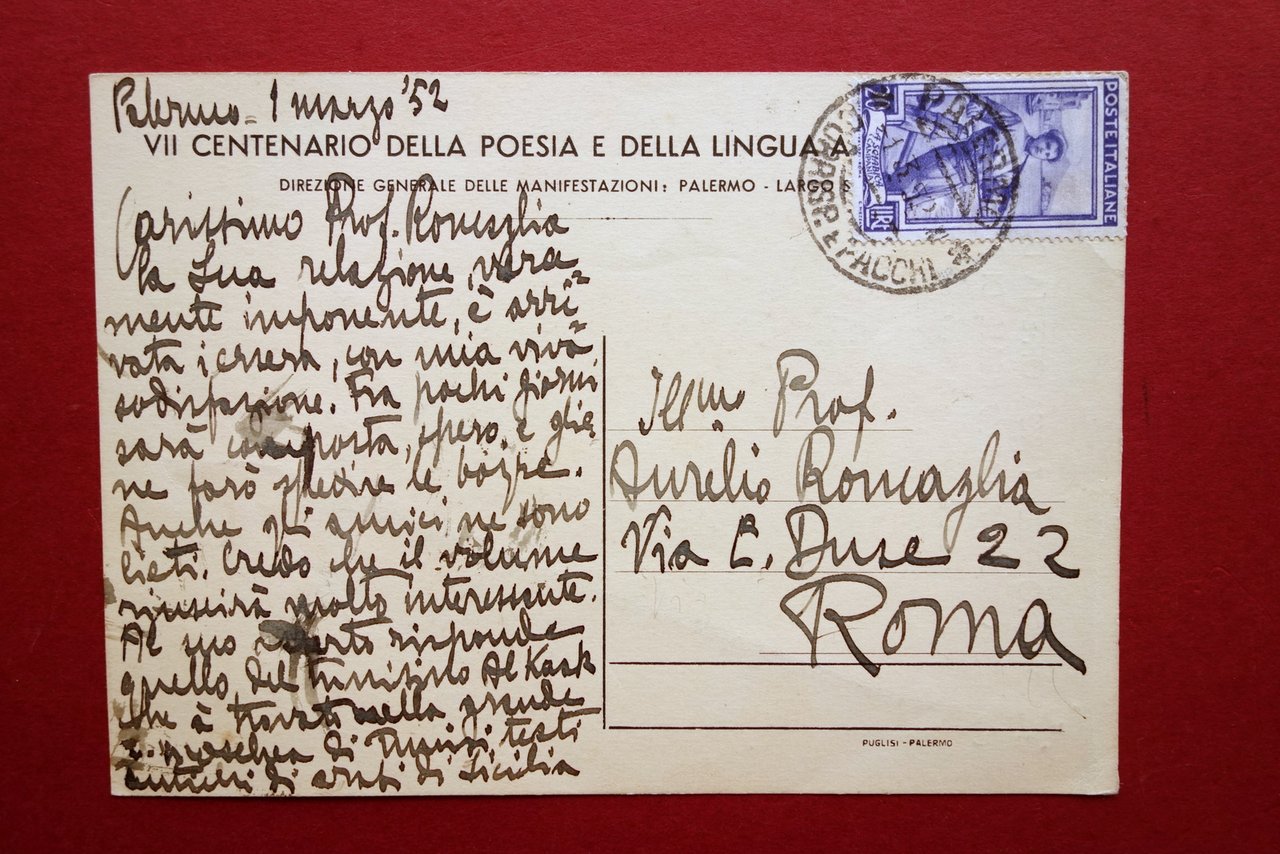 Palermo - 1 marzo '52
VII CENTENARIO DELLA POESIA E DELLA LINGUA
DIREZIONE GENERALE DELLE MANIFESTAZIONI: PALERMO - LARGO
Carissimo Prof. Roncaglia
la Sua relazione, vera
mente imponente, è arri=
vata iersera, con mia viva
sodisfazione. Fra pochi giorni
sarà composta, spero, e glie
ne farò spedire le bozze.
Anche gli amici ne sono
lieti. Credo che il volume
riuscirà molto interessante.
Al suo risponde
quello del tunisino Al Kaak
che à trovato nella grande
moschea di Tunisi testi
antichi di arabi di Sicilia
POSTE ITALIANE
20
LIRE
CORRISP. E PACCHI
Ill.mo Prof.
Aurelio Roncaglia
Via E. Duse 22
Roma
PUGLISI - PALERMO